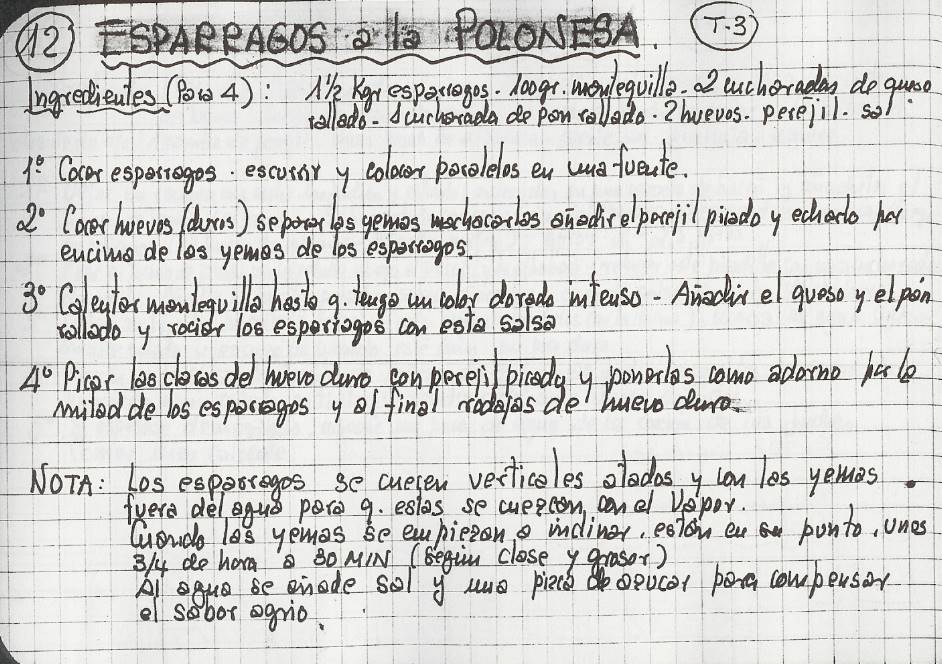 12 ESPARRAGOS a la POLONESA. T-3
Ingredientes (Para 4): 1½ Kgr esparragos - 100gr. mantequilla - 2 cucharadas de queso
rallado - 1 cucharada de pan rallado - 2 huevos - perejil - sal
1º Cocer esparragos - escurrir y colocar paralelos en una fuente.
2º Cocer huevos (duros) separar las yemas machacarlas añadir el perejil picado y echarlo por
encima de las yemas de los esparragos.
3º Calentar mantequilla hasta q. tenga un color dorado intenso - Añadir el queso y el pan
rallado y rociar los esparragos con esta salsa
4º Picar las claras del huevo duro con perejil picado y ponerlas como adorno por la
mitad de los esparragos y al final rodajas de huevo duro.
NOTA: Los esparragos se cuecen verticales atados y con las yemas
fuera del agua para q. estas se cuezcan con el vapor.
Cuando las yemas se empiezan a inclinar, están en su punto, unos
3/4 de hora a 30 MIN (según clase y grosor)
Al agua se añade sal y una pizca de azucar para compensar
el sabor agrio.